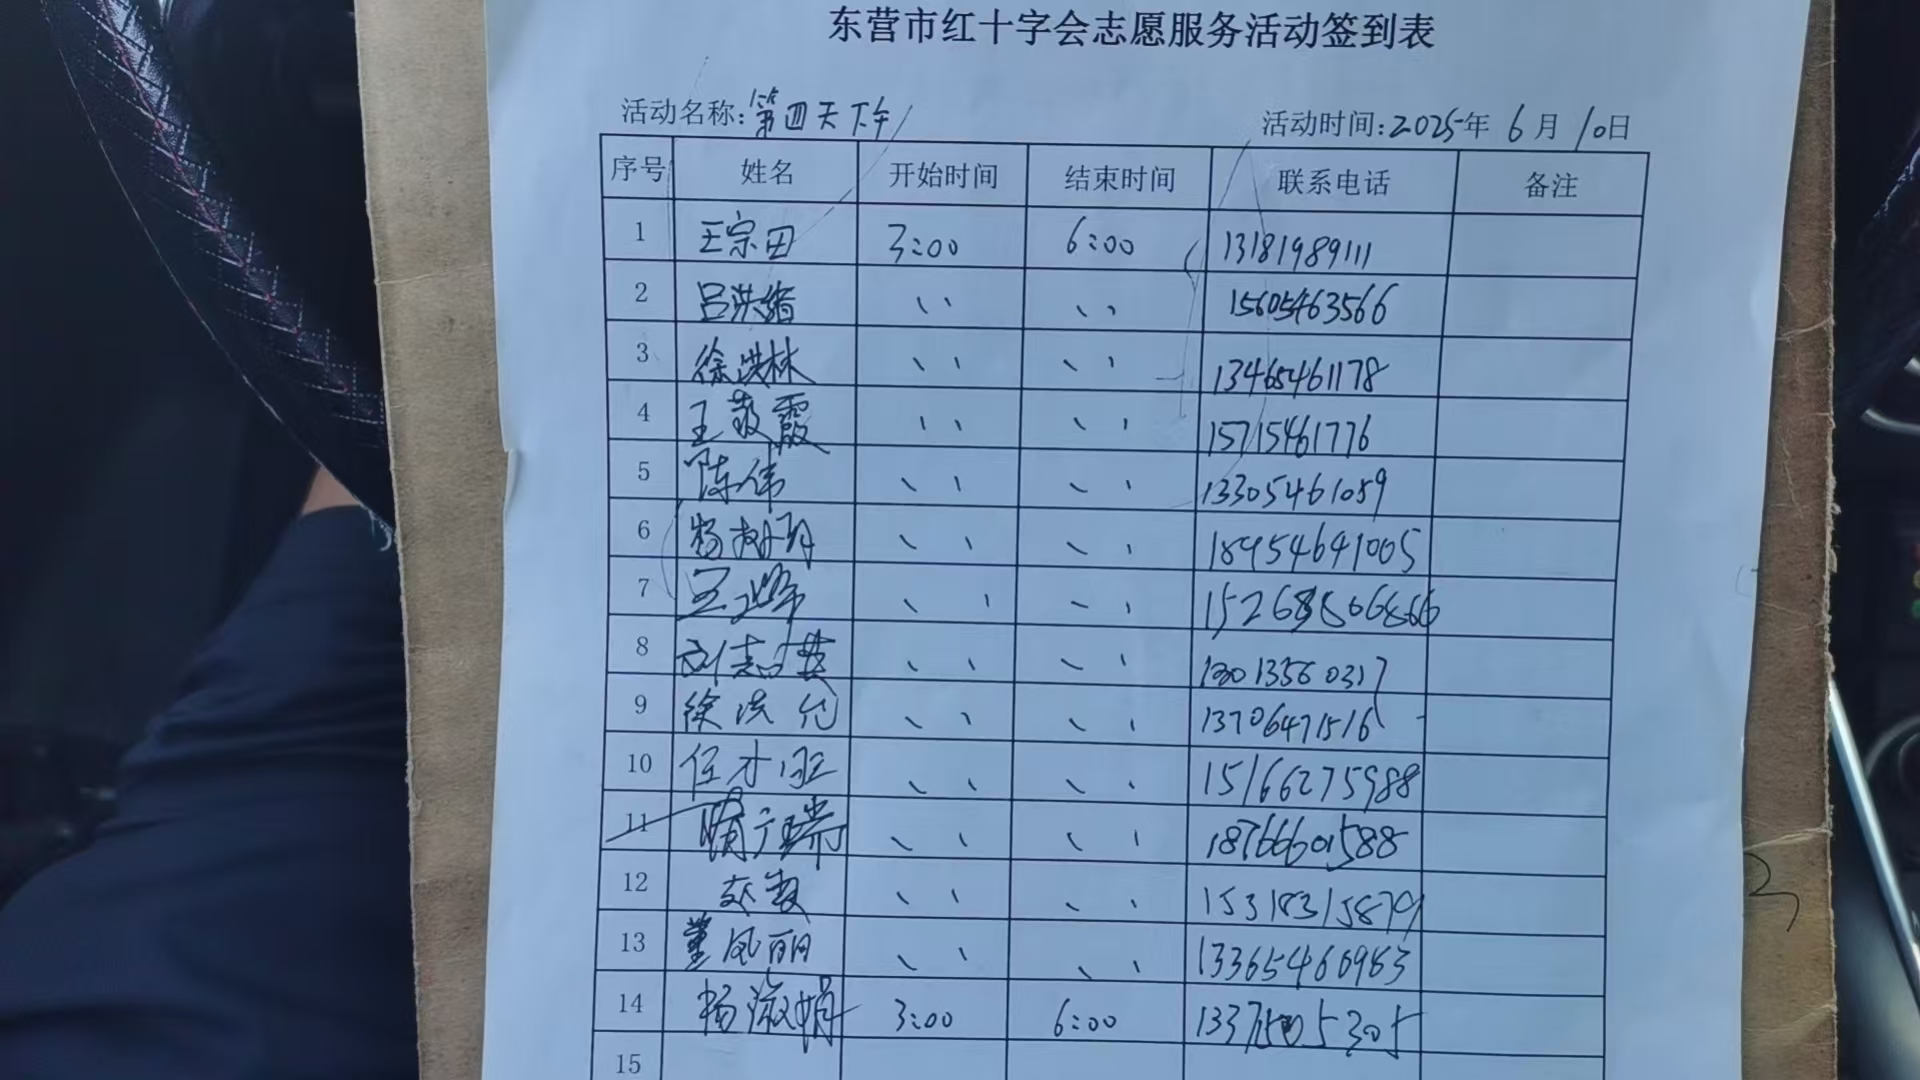 东营市红十字会志愿服务活动签到表
活动名称:第四天下午 活动时间:2025年6月10日
序号 姓名 开始时间 结束时间 联系电话 备注
1 王宗田 3:00 6:00 13181989111
2 吕洪绪 、、 、、 15605463566
3 徐洪林 、、 、、 13465461178
4 王敬霞 、、 、、 15715461776
5 陈伟 、、 、、 13305461059
6 杨树 、、 、、 18954641005
7 、、 、、
8 刘志英 、、 、、
9 徐洪 、、 、、 13706471516
10 任才 、、 、、 15166275988
11 隋广瑞 、、 、、 18766601588
12 、、 、、 15318315879
13 董凤丽 、、 、、 13365460983
14 杨淑娟 3:00 6:00
15